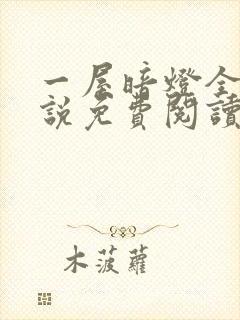 一屋暗燈全
說免費閱讀
木菠蘿